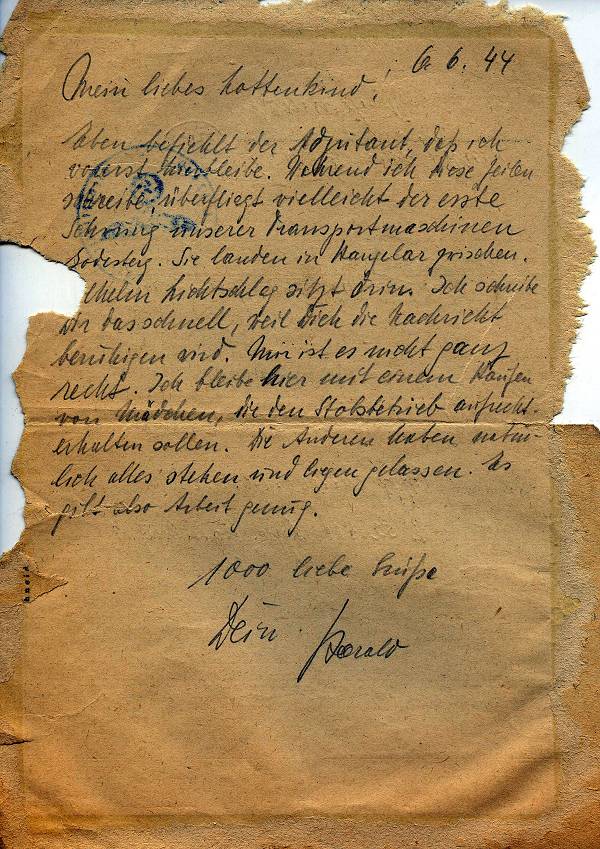 6. 6. 44
Mein liebes Lottenkind!
Eben befiehlt der Adjutant, daß ich
vorerst hierbleibe. Während ich diese Zeilen
schreibe, überfliegt vielleicht der erste
Schwung unserer Transportmaschinen
Godesberg. Sie landen in Hangelar zwischen.
Wilhelm Lichtschlag sitzt drin. Ich schreibe
Dir das schnell, weil Dich die Nachricht
beruhigen wird. Mir ist es nicht ganz
recht. Ich bleibe hier mit einem Haufen
von Mädchen, die den Stabsbetrieb aufrecht-
erhalten sollen. Die Anderen haben natür-
lich alles stehen und liegen gelassen. Es
gibt also Arbeit genug.
1000 liebe Grüße
Dein Harald